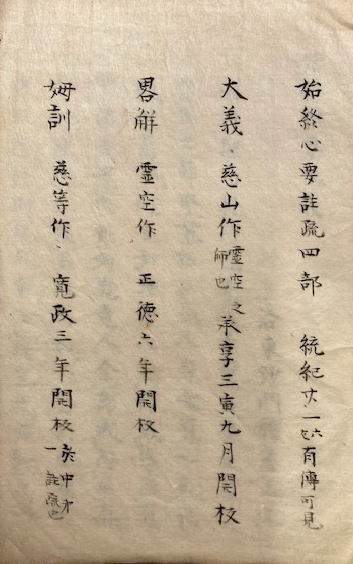 始終心要註疏四部 統紀廿一 有傳可見
大義、慈山作 靈空之師也 承享三寅九月開板
畧解 霊空作 正德六年開板
姆訓 慈等作、寬政三年開板 於中才一註疏也